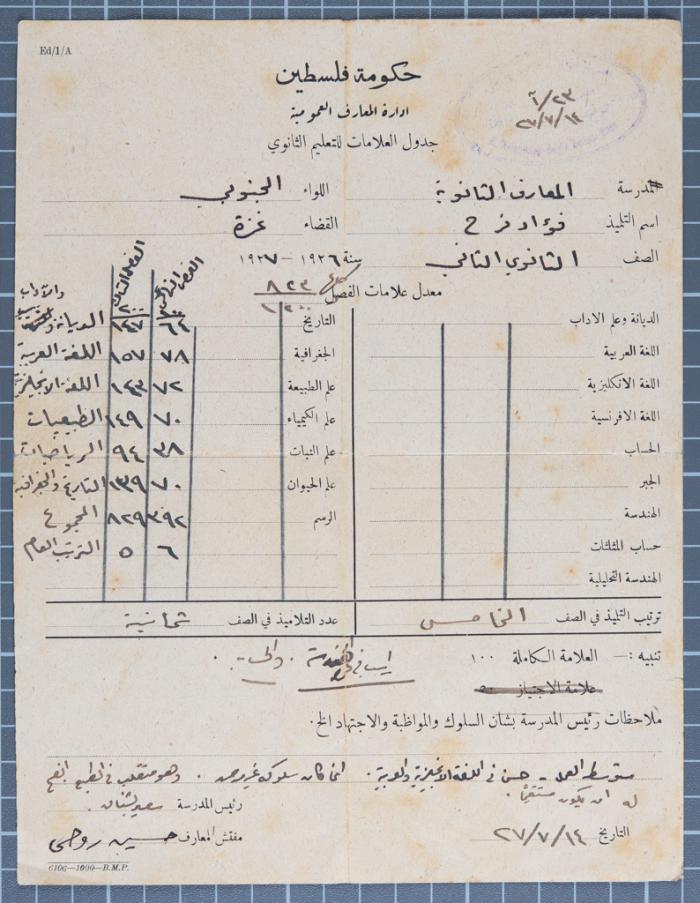 Ed/1/A
حكومة فلسطين
ادارة المعارف العمومية
جدول العلامات للتعليم الثانوي
٢٣/٦
٢٧/٧/١٤
المدرسة المعارف الثانوية اللواء الجنوبي
اسم التلميذ فؤاد فرح القضاء غزة
الصف الثانوي الثاني سنة ١٩٢٦ - ١٩٢٧
معدل علامات الفصل ٨٢٣
١٢٠٠
الديانة وعلم الاداب
اللغة العربية
اللغة الانكليزية
اللغة الافرنسية
الحساب
الجبر
الهندسة
حساب المثلثات
الهندسة التحليلية
التاريخ
الجغرافية
علم الطبيعة
علم الكيمياء
علم النبات
علم الحيوان
الرسم
٦٤ ١٤٧ الديانة
٧٨ ١٥٧ اللغة العربية
٧٢ ١٤٣ اللغة الانجليزية
٧٠ ١٤٩ الطبيعيات
٣٨ ٩٤ الرياضيات
٧٠ ١٣٩ التاريخ والجغرافية
٣٩٢ ٨٢٩ المجموع
٦ ٥ الترتيب العام
ترتيب التلميذ في الصف الخامس عدد التلاميذ في الصف ثمانية
تنبيه :— العلامة الكاملة ١٠٠
علامة الاجتياز ٥٠
ملاحظات رئيس المدرسة بشان السلوك والمواظبة والاجتهاد الخ.
متوسط العمل - حسن في اللغة الانجليزية والعربية. انما كان سلوكه غير مرض. وهو متقلب في الطبع انصح
له ان يكون مستقيماً.
رئيس المدرسة
التاريخ ٢٧/٧/١٤ مفتش المعارف حسين روحي
6106—1000—B.M.P.